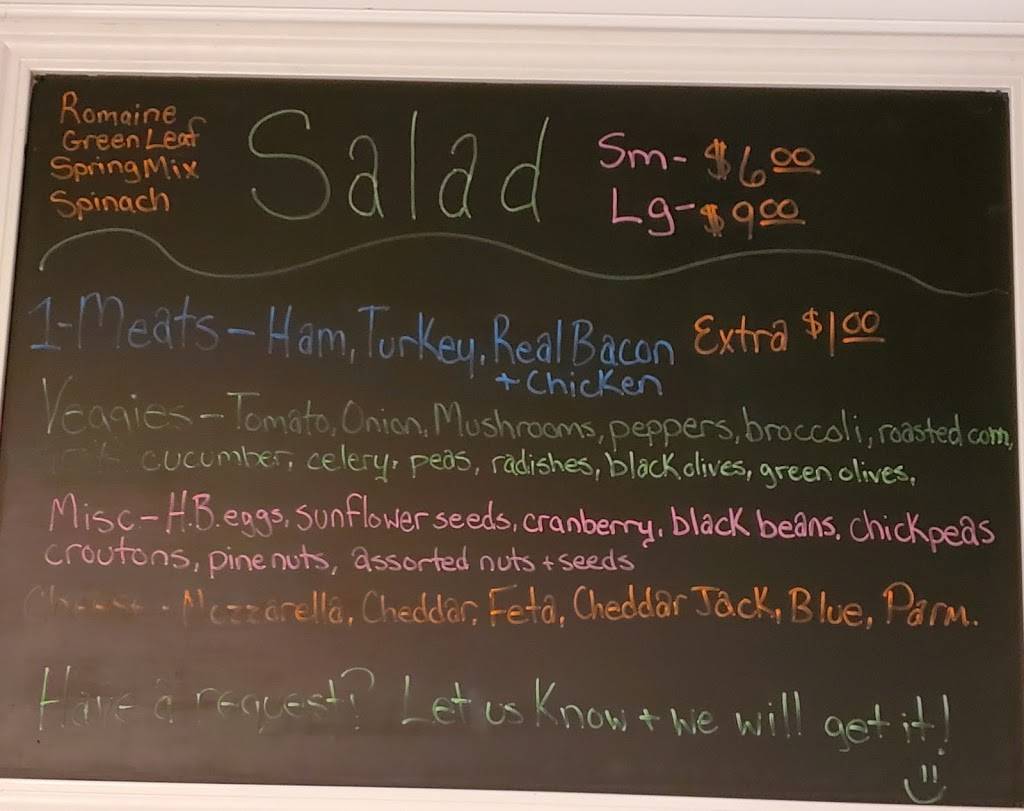 Romaine
Green Leaf
Spring Mix
Spinach
Salad
Sm- $6.00
Lg- $9.00
1-Meats - Ham, Turkey, Real Bacon Extra $1.00
+ Chicken
Veggies - Tomato, Onion, Mushrooms, peppers, broccoli, roasted corn,
cucumber, celery, peas, radishes, black olives, green olives,
Misc - H.B. eggs, sunflower seeds, cranberry, black beans, chickpeas
croutons, pine nuts, assorted nuts + seeds
Cheese - Mozzarella, Cheddar, Feta, Cheddar Jack, Blue, Parm.
Have a request? Let us Know + we will get it!